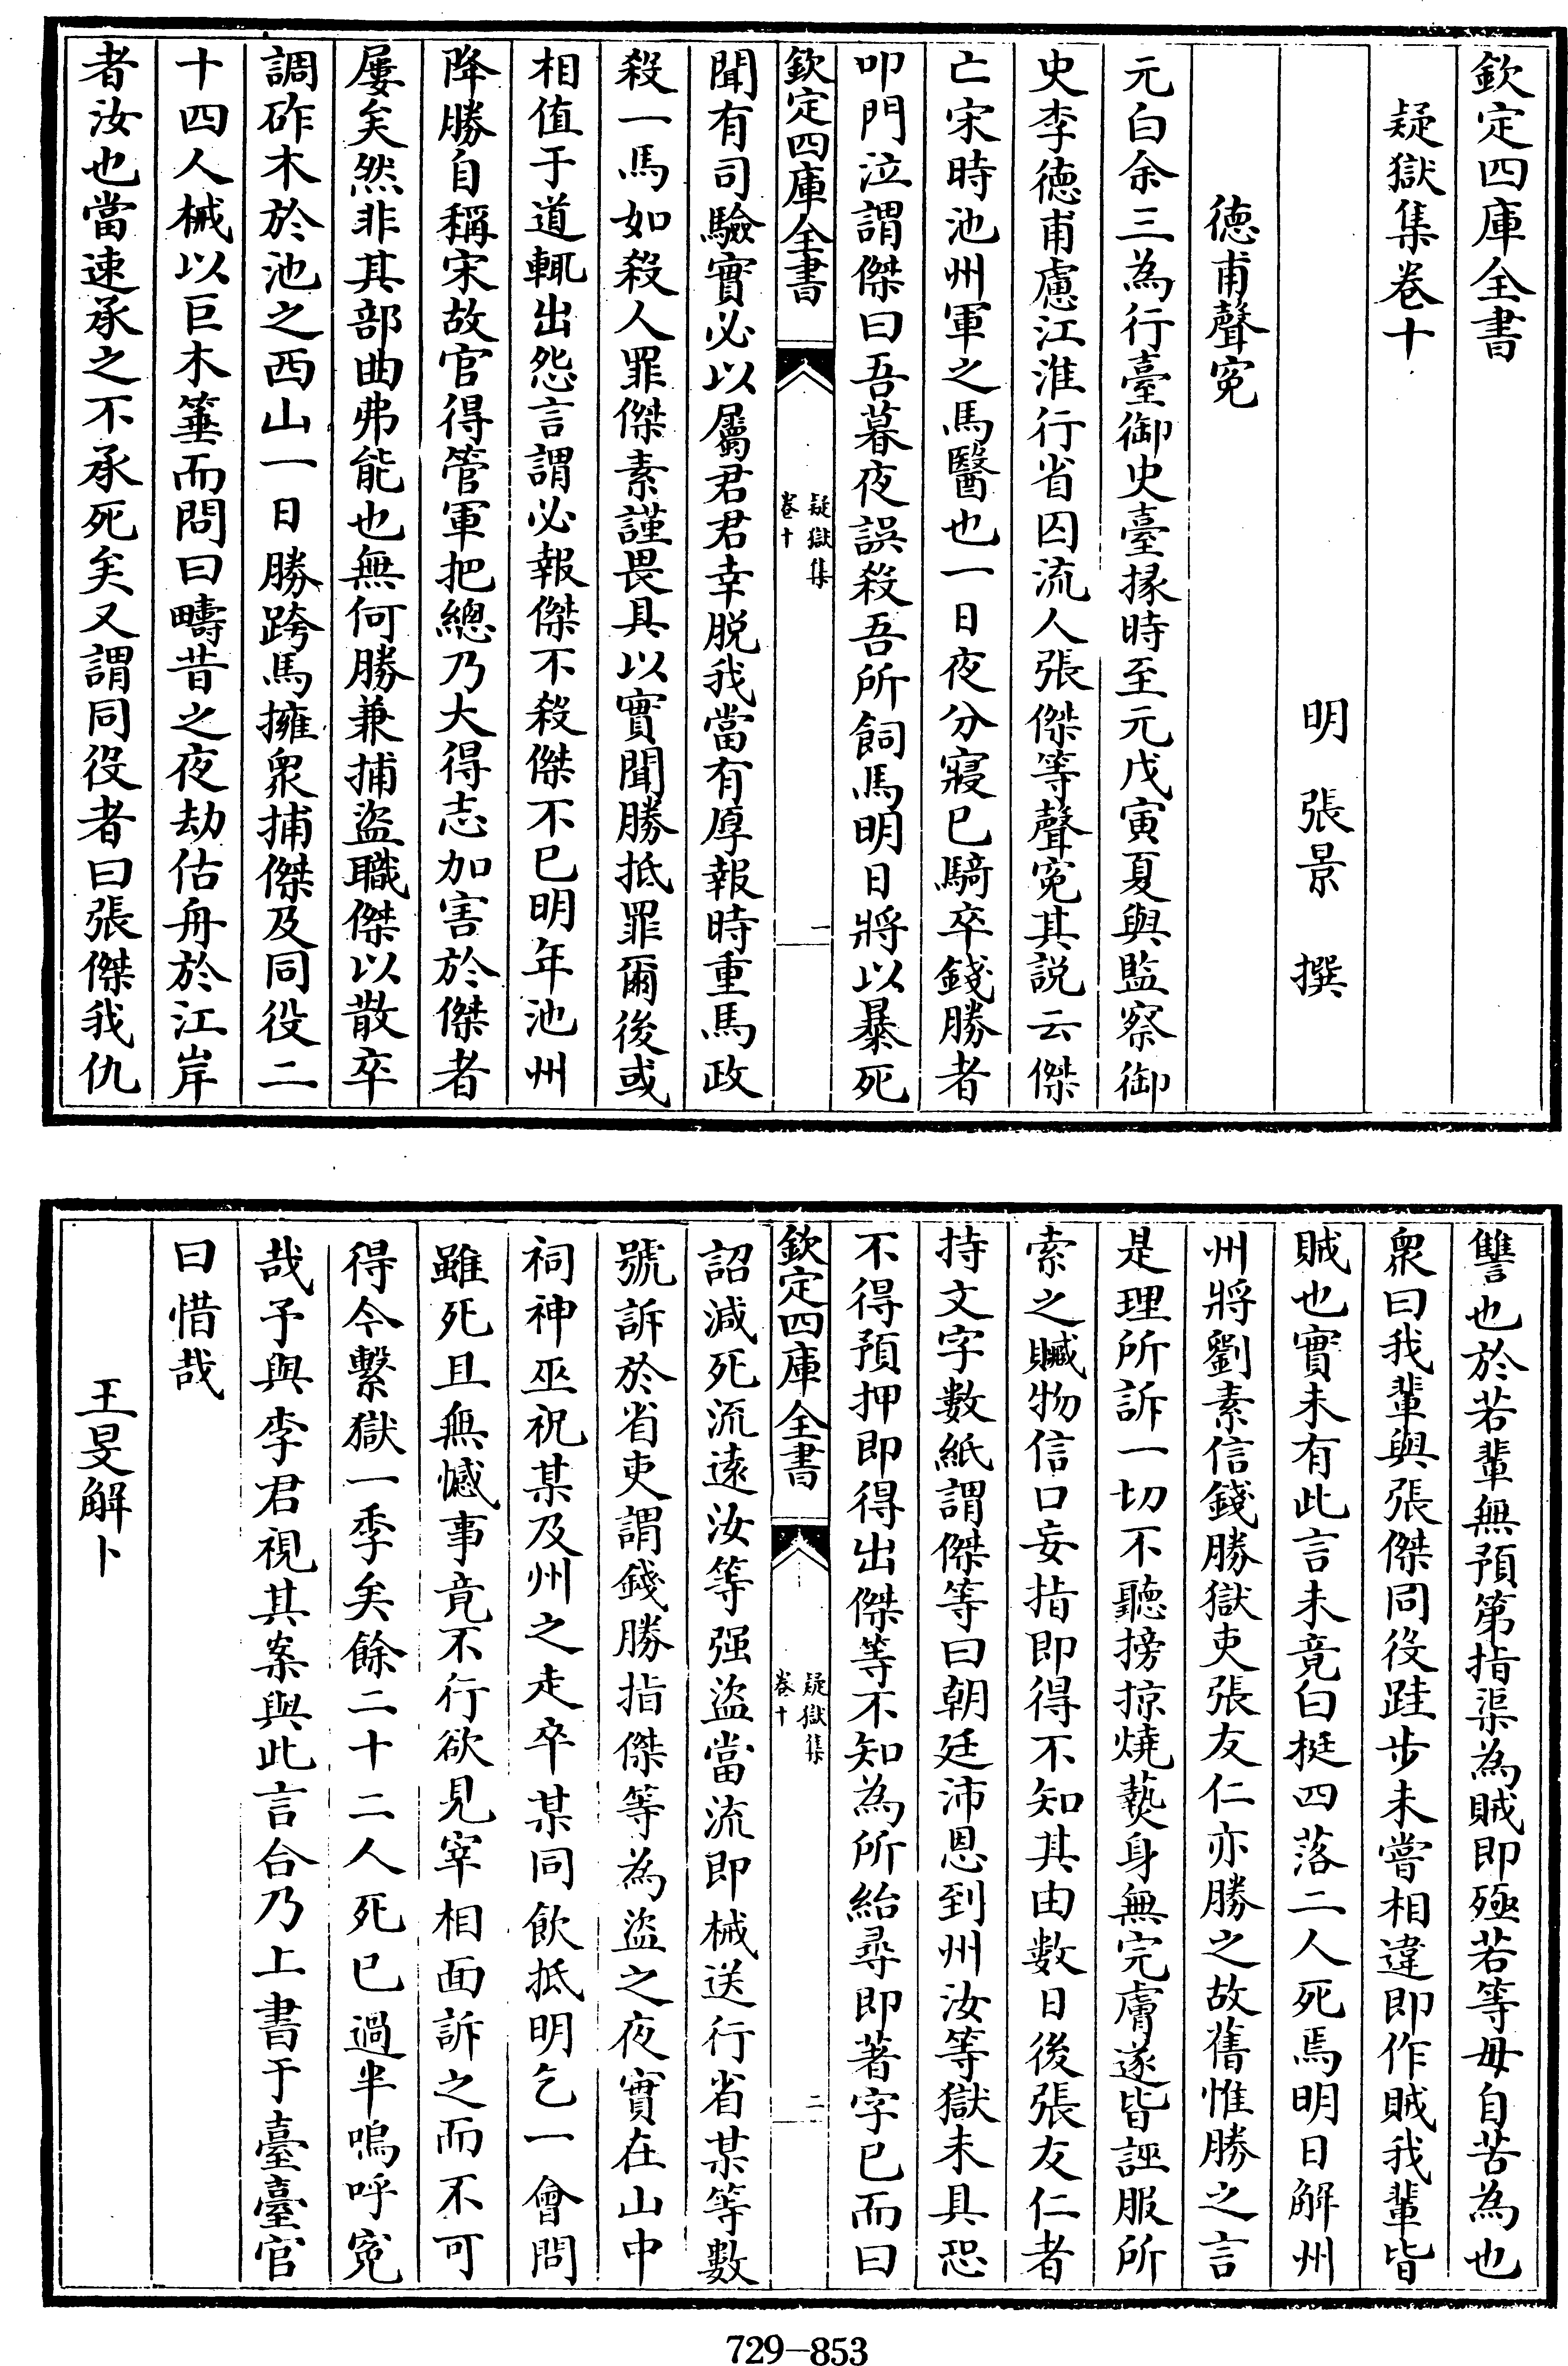 欽定四庫全書
疑獄集卷十
明 張景 撰
德甫聲寃
元白余三為行臺御史臺掾時至元戊寅夏與監察御
史李德甫慮江淮行省囚流人張傑等聲寃其説云傑
亡宋時池州軍之馬醫也一日夜分寢已騎卒錢勝者
叩門泣謂傑曰吾暮夜誤殺吾所飼馬明日將以暴死
欽定四庫全書
疑獄集
卷十
一
聞有司驗實必以屬君君幸脱我當有厚報時重馬政
殺一馬如殺人罪傑素謹畏具以實聞勝抵罪爾後或
相值于道輒出怨言謂必報傑不殺傑不已明年池州
降勝自稱宋故官得管軍把總乃大得志加害於傑者
屢矣然非其部曲弗能也無何勝兼捕盜職傑以散卒
調砟木於池之西山一日勝跨馬擁衆捕傑及同役二
十四人械以巨木箠而問曰疇昔之夜劫估舟於江岸
者汝也當速承之不承死矣又謂同役者曰張傑我仇
讐也於若輩無預第指渠為賊即殛若等毋自苦為也
衆曰我輩與張傑同役跬步未嘗相違即作賊我輩皆
賊也實未有此言未竟白梃四落二人死焉明日解州
州將劉素信錢勝獄吏張友仁亦勝之故舊惟勝之言
是理所訴一切不聽搒掠燒爇身無完膚遂皆誣服所
索之贓物信口妄指即得不知其由數日後張友仁者
持文字數紙謂傑等曰朝廷沛恩到州汝等獄未具恐
不得預押即得出傑等不知為所紿尋即著字已而曰
欽定四庫全書
疑獄集
卷十
二
詔減死流遠汝等强盜當流即械送行省某等數
號訴於省吏謂錢勝指傑等為盜之夜實在山中
祠神巫祝某及州之走卒某同飲抵明乞一會問
雖死且無憾事竟不行欲見宰相面訴之而不可
得今繫獄一季矣餘二十二人死已過半嗚呼寃
哉予與李君視其案與此言合乃上書于臺臺官
曰惜哉
王旻解卜
729—853